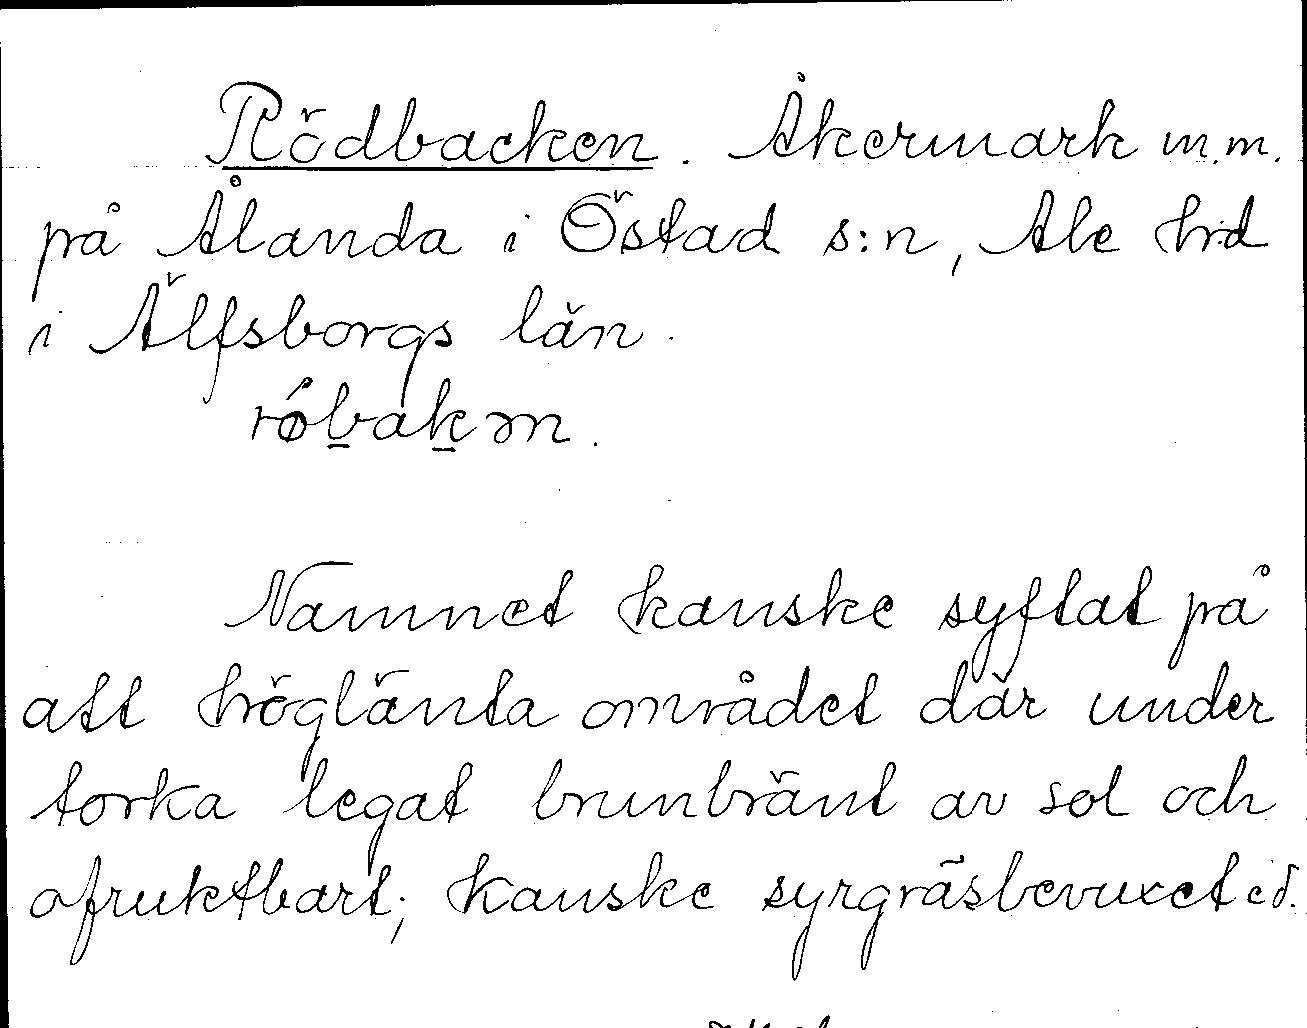 Rödbacken. Åkermark m.m.
på Ålanda i Östad s:n, Ale hrd
i Älfsborgs län.
rǿbakən.
Namnet kanske syftat på
att höglänta området där under
torka legat brunbränt av sol och
ofruktbart; kanske syrgräsbevuxet ed.